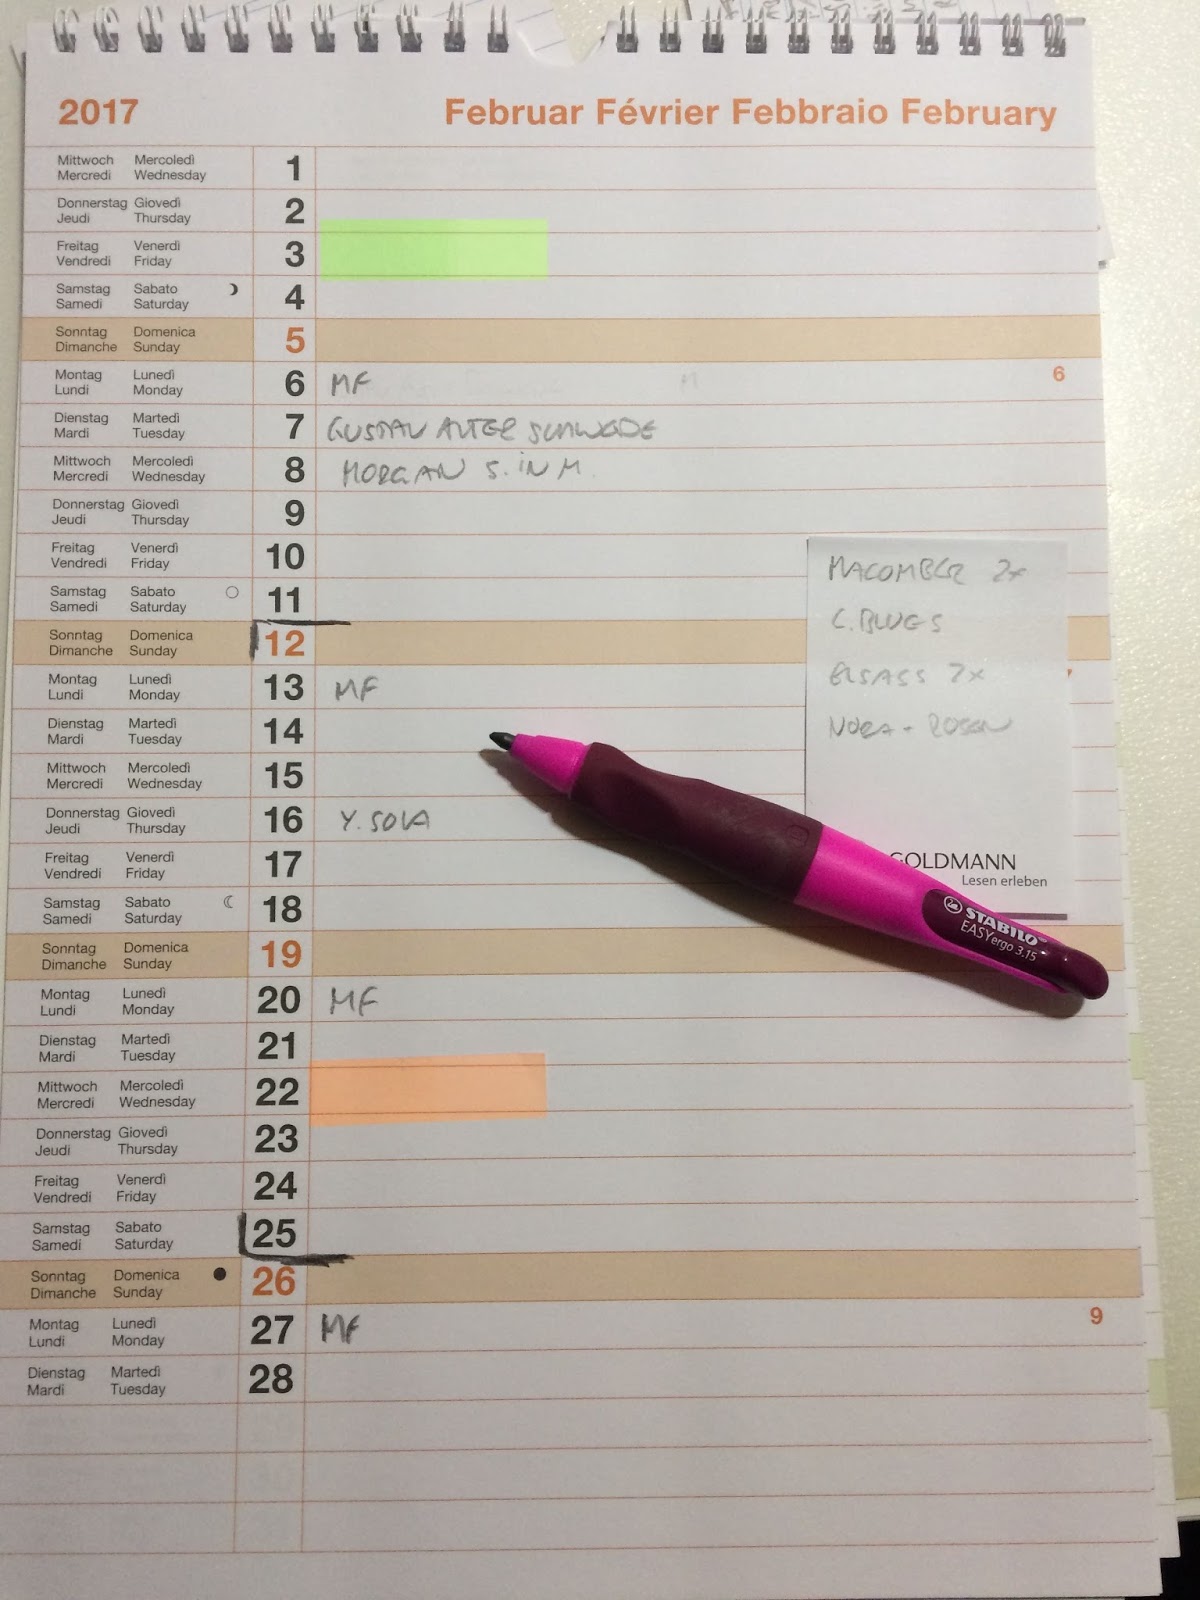 2017 Februar Février Febbraio February
Mittwoch Mercoledì 1
Mercredi Wednesday
Donnerstag Giovedì 2
Jeudi Thursday
Freitag Venerdì 3
Vendredi Friday
Samstag Sabato 4
Samedi Saturday
Sonntag Domenica 5
Dimanche Sunday
Montag Lunedì 6 MF 6
Lundi Monday
Dienstag Martedì 7 GUSTAV ALTER SCHWEDE
Mardi Tuesday
Mittwoch Mercoledì 8 MORGAN S. IN M.
Mercredi Wednesday
Donnerstag Giovedì 9
Jeudi Thursday
Freitag Venerdì 10
Vendredi Friday
Samstag Sabato 11
Samedi Saturday
Sonntag Domenica 12
Dimanche Sunday
Montag Lunedì 13 MF
Lundi Monday
Dienstag Martedì 14
Mardi Tuesday
Mittwoch Mercoledì 15
Mercredi Wednesday
Donnerstag Giovedì 16 Y. SOLA
Jeudi Thursday
Freitag Venerdì 17
Vendredi Friday
Samstag Sabato 18
Samedi Saturday
Sonntag Domenica 19
Dimanche Sunday
Montag Lunedì 20 MF
Lundi Monday
Dienstag Martedì 21
Mardi Tuesday
Mittwoch Mercoledì 22
Mercredi Wednesday
Donnerstag Giovedì 23
Jeudi Thursday
Freitag Venerdì 24
Vendredi Friday
Samstag Sabato 25
Samedi Saturday
Sonntag Domenica 26
Dimanche Sunday
Montag Lunedì 27 MF 9
Lundi Monday
Dienstag Martedì 28
Mardi Tuesday
MACOMBER 2x
C. BLUES
ELSASS 2x
NORA - ROSEN
GOLDMANN
Lesen erleben
STABILO
EASYergo 3.15